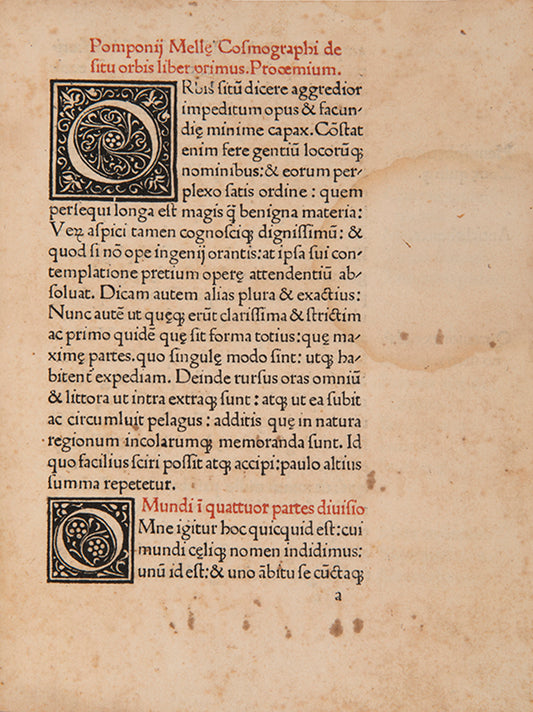 Pomponij Mellę Coſmographi de
ſitu orbis liber primus. Prooemium.
ORbis ſitū dicere aggredior
impeditum opus & facun⸗
dię minime capax. Cōſtat
enim fere gentiū locorūꝗ
nominibus: & eorum per⸗
plexo ſatis ordine : quem
perſequi longa eſt magis q̄ benigna materia:
Veꝝ aſpici tamen cognoſciꝗ digniſſimū: &
quod ſi nō ope ingenij orantis: at ipſa ſui con⸗
templatione pretium operę attendentiū ab⸗
ſoluat. Dicam autem alias plura & exactius:
Nunc autē ut quęꝗ erūt clariſſima & ſtrictim
ac primo quidē quę ſit forma totius: quę ma⸗
ximę partes. quo ſingulę modo ſint: utꝗ ha⸗
bitent̄ expediam. Deinde rurſus oras omniū
& littora ut intra extraꝗ ſunt : atꝗ ut ea ſubit
ac circumluit pelagus : additis quę in natura
regionum incolarumꝗ memoranda ſunt. Id
quo facilius ſciri poſſit atꝗ accipi: paulo altius
ſumma repetetur.
Mundi ī quattuor partes diuiſio
OMne igitur hoc quicquid eſt: cui
mundi cęliꝗ nomen indidimus:
unū id eſt: & uno ābitu ſe cūctaꝗ
a